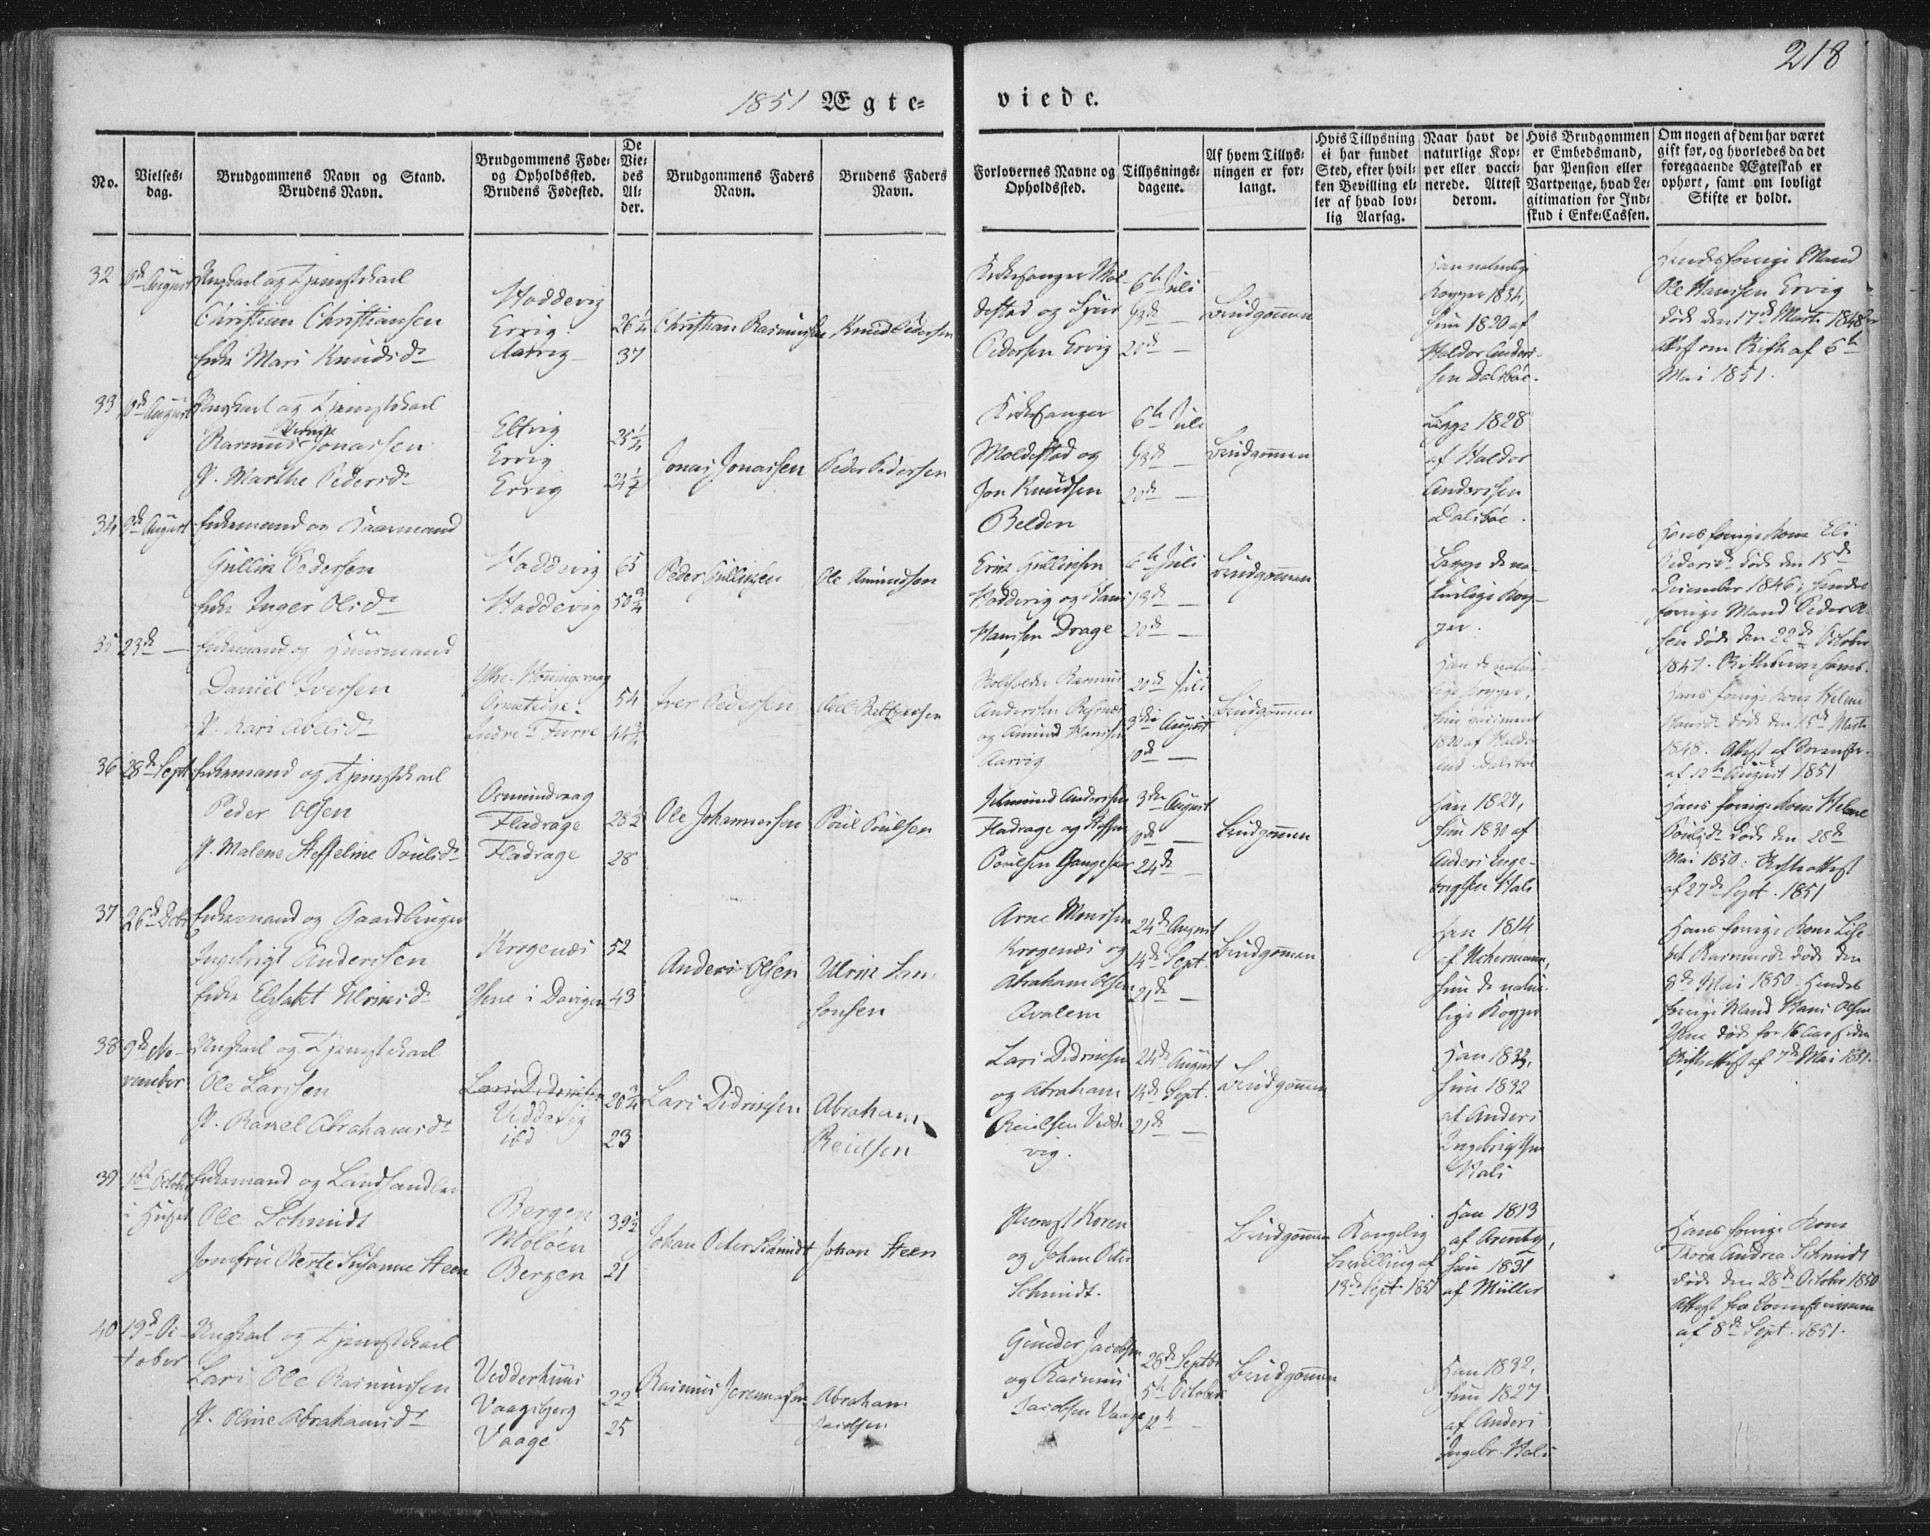 218
1851 Ægte-
viede.
No.
Vielses-
dag.
Brudgommens Navn og Stand.
Brudens Navn.
Brudgommens Føde-
og Opholdssted.
Brudens Fødested.
De
Vie-
des
Al-
der.
Brudgommens Faders
Navn.
Brudens Faders
Navn.
Forlovernes Navne og
Opholdssted.
Tillysnings-
dagene.
Af hvem Tillys-
ningen er for-
langt.
Hvis Tillysning
ei har fundet
Sted, efter hvil-
ken Bevilling el-
ler af hvad lov-
lig Aarsag.
Naar havt de
naturlige Kop-
per eller vacci-
nerede. Attest
derom.
Hvis Brudgommen
er Embedsmand,
har Pension eller
Vartpenge, hvad Le-
gitimation for Ind-
skud i Enke-Cassen.
Om nogen af dem har været
gift før, og hvorledes da det
foregaaende Ægteskab er
ophørt, samt om lovligt
Skifte er holdt.
32
August
Ungkarl og Tjenestekarl
Christian Christiansen
Enke Mari Knudsd.
Hoddevig
Ervig
Aarvig
26 1/4
37
Christian Rasmussen
Knud Pedersen
Kirkesanger Mol-
destad og Sjur
Pedersen Ervig
6te Juli
13de —
20de —
Brudgommen
Han naturlige
Kopper 1834,
Hun 1820 af
Haldor Anders-
sen Dalsbøe.
Hendes forrige Mand
Ole Hanssen Ervig
døde den 17de Marts 1848
Skifte af 6te
Mai 1851.
33
August
Ungkarl og Tjenestekarl
Rasmus Jonassen
P. Marthe Pedersd.
Eltvig
Ervig
Ervig
25 1/4
24 1/2
Jonas Jonassen
Peder Pedersen
Kirkesanger
Moldestad og
Jon Knudsen
Belden
6te Juli
13de —
20de —
Brudgommen
Begge 1828
af Haldor
Anderssen
Dalsbøe.
34
August
Enkemand og Kaarmand
Gullik Pedersen
Enke Inger Olsd.
Hoddevig
Hoddevig
65
50 3/4
Peder Gulliksen
Ole Amundsen
Erik Gulliksen
Hoddevig og Hans
Hanssen Drage
6te Juli
13de —
20de —
Brudgommen
Begge de na-
turlige Kop-
per.
Hans forrige Kone Eli
Pedersd. døde den 15de
December 1846; Hendes
forrige Mand Peder
sen døde den 22de October
1847.
35
23de —
Enkemand og Huusmand
Daniel Iversen
P. Kari Abelsd.
Indre Furre
54
44 3/4
Iver Pedersen
Rasmus
Anderssen Refsnes
og Amund Hanssen
Aarvig
20de Juli
3die August
10de —
Brudgommen
Han de natur-
lige Kopper,
Hun vaccineret
1820 af Haldor
And. Dalsbøe
Hans forrige Kone Helene
Hansd. døde den 15de Marts
1848. Attest af
af 12te August 1851
36
28de Sept
Enkemand og Tjenestekarl
Peder Olsen
P. Malene Steffeline Poulsd.
Osmundvaag
Fladrage
Fladrage
28 1/2
28
Ole Johannessen
Poul Poulsen
Amund Anderssen
Fladrage og Steffen
Poulsen Gangeskar
3die August
10de —
24de
Brudgommen
Han 1827,
Hun 1830 af
Anders Inge-
brigtsen Hals
Hans forrige Kone Helene
Poulsd. døde den 28de
Mai 1850. Skifteattest
af 27de Sept. 1851
37
26de Octbr
Enkemand og Gaardbruger
Ingebrigt Anderssen
Enke Elisabet Ulriksd.
Krogenæs
Hyene i Davigen
52
43
Anders Olsen
Ulrik Len-
sonsen
Arne Monssen
Krogenæs og
Abraham Olsen
Qvalem
24de August
14de Sept.
21de —
Brudgommen
Han 1814
af Ackermann,
Hun de natur-
lige Kopper
Hans forrige Kone Lise-
bet Rasmusd. døde den
8de Mai 1850. Hendes
forrige Mand Hans Olsen
Hyene døde for 16 Aar siden
Skifteattest af 7de Mai 1851.
38
9de No-
vember
Ungkarl og Tjenestekarl
Ole Larssen
P. Rakel Abrahamsd.
Lars Didriksen
Veddevig
ibd
20 3/4
23
Lars Didriksen
Abraham
Reielsen
Lars Didriksen
og Abraham
Reielsen Vedde-
vig.
24de August
14de Sept.
21de —
Brudgommen
Han 1833,
Hun 1832
af Anders
Ingebrigtsen
Hals
39
1ste October
i Huset
Enkemand og Landhandler
Ole Schmidt
Jomfru Berte Susanne Steen
Bergen
Moldøen
Bergen
39 1/2
21
Johan Peter Schmidt
Johan Steen
Provst Koren
og Johan Peter
Schmidt.
Brudgommen
Kongelig
Bevilling af
13de Sept 1851
Han 1813
af Arentz,
Hun 1831
af Müller
Hans forrige Kone
Thora Andrea Schmidt
døde den 28de October 1850
Attest fra
af 8de Sept. 1851.
40
19de Oc-
tober
Ungkarl og Tjenestekarl
Lars Ole Rasmussen
P. Oline Abrahamsd.
Vedderhuus
Vaagsberg
Vaage
22
25
Rasmus Jeremiassen
Abraham
Jacobsen
Gunder Jacobsen
og Rasmus
Jacobsen Vaage
28de Septbr
5te October
12te —
Brudgommen
Han 1832,
Hun 1827
af Anders
Ingebr. Hals